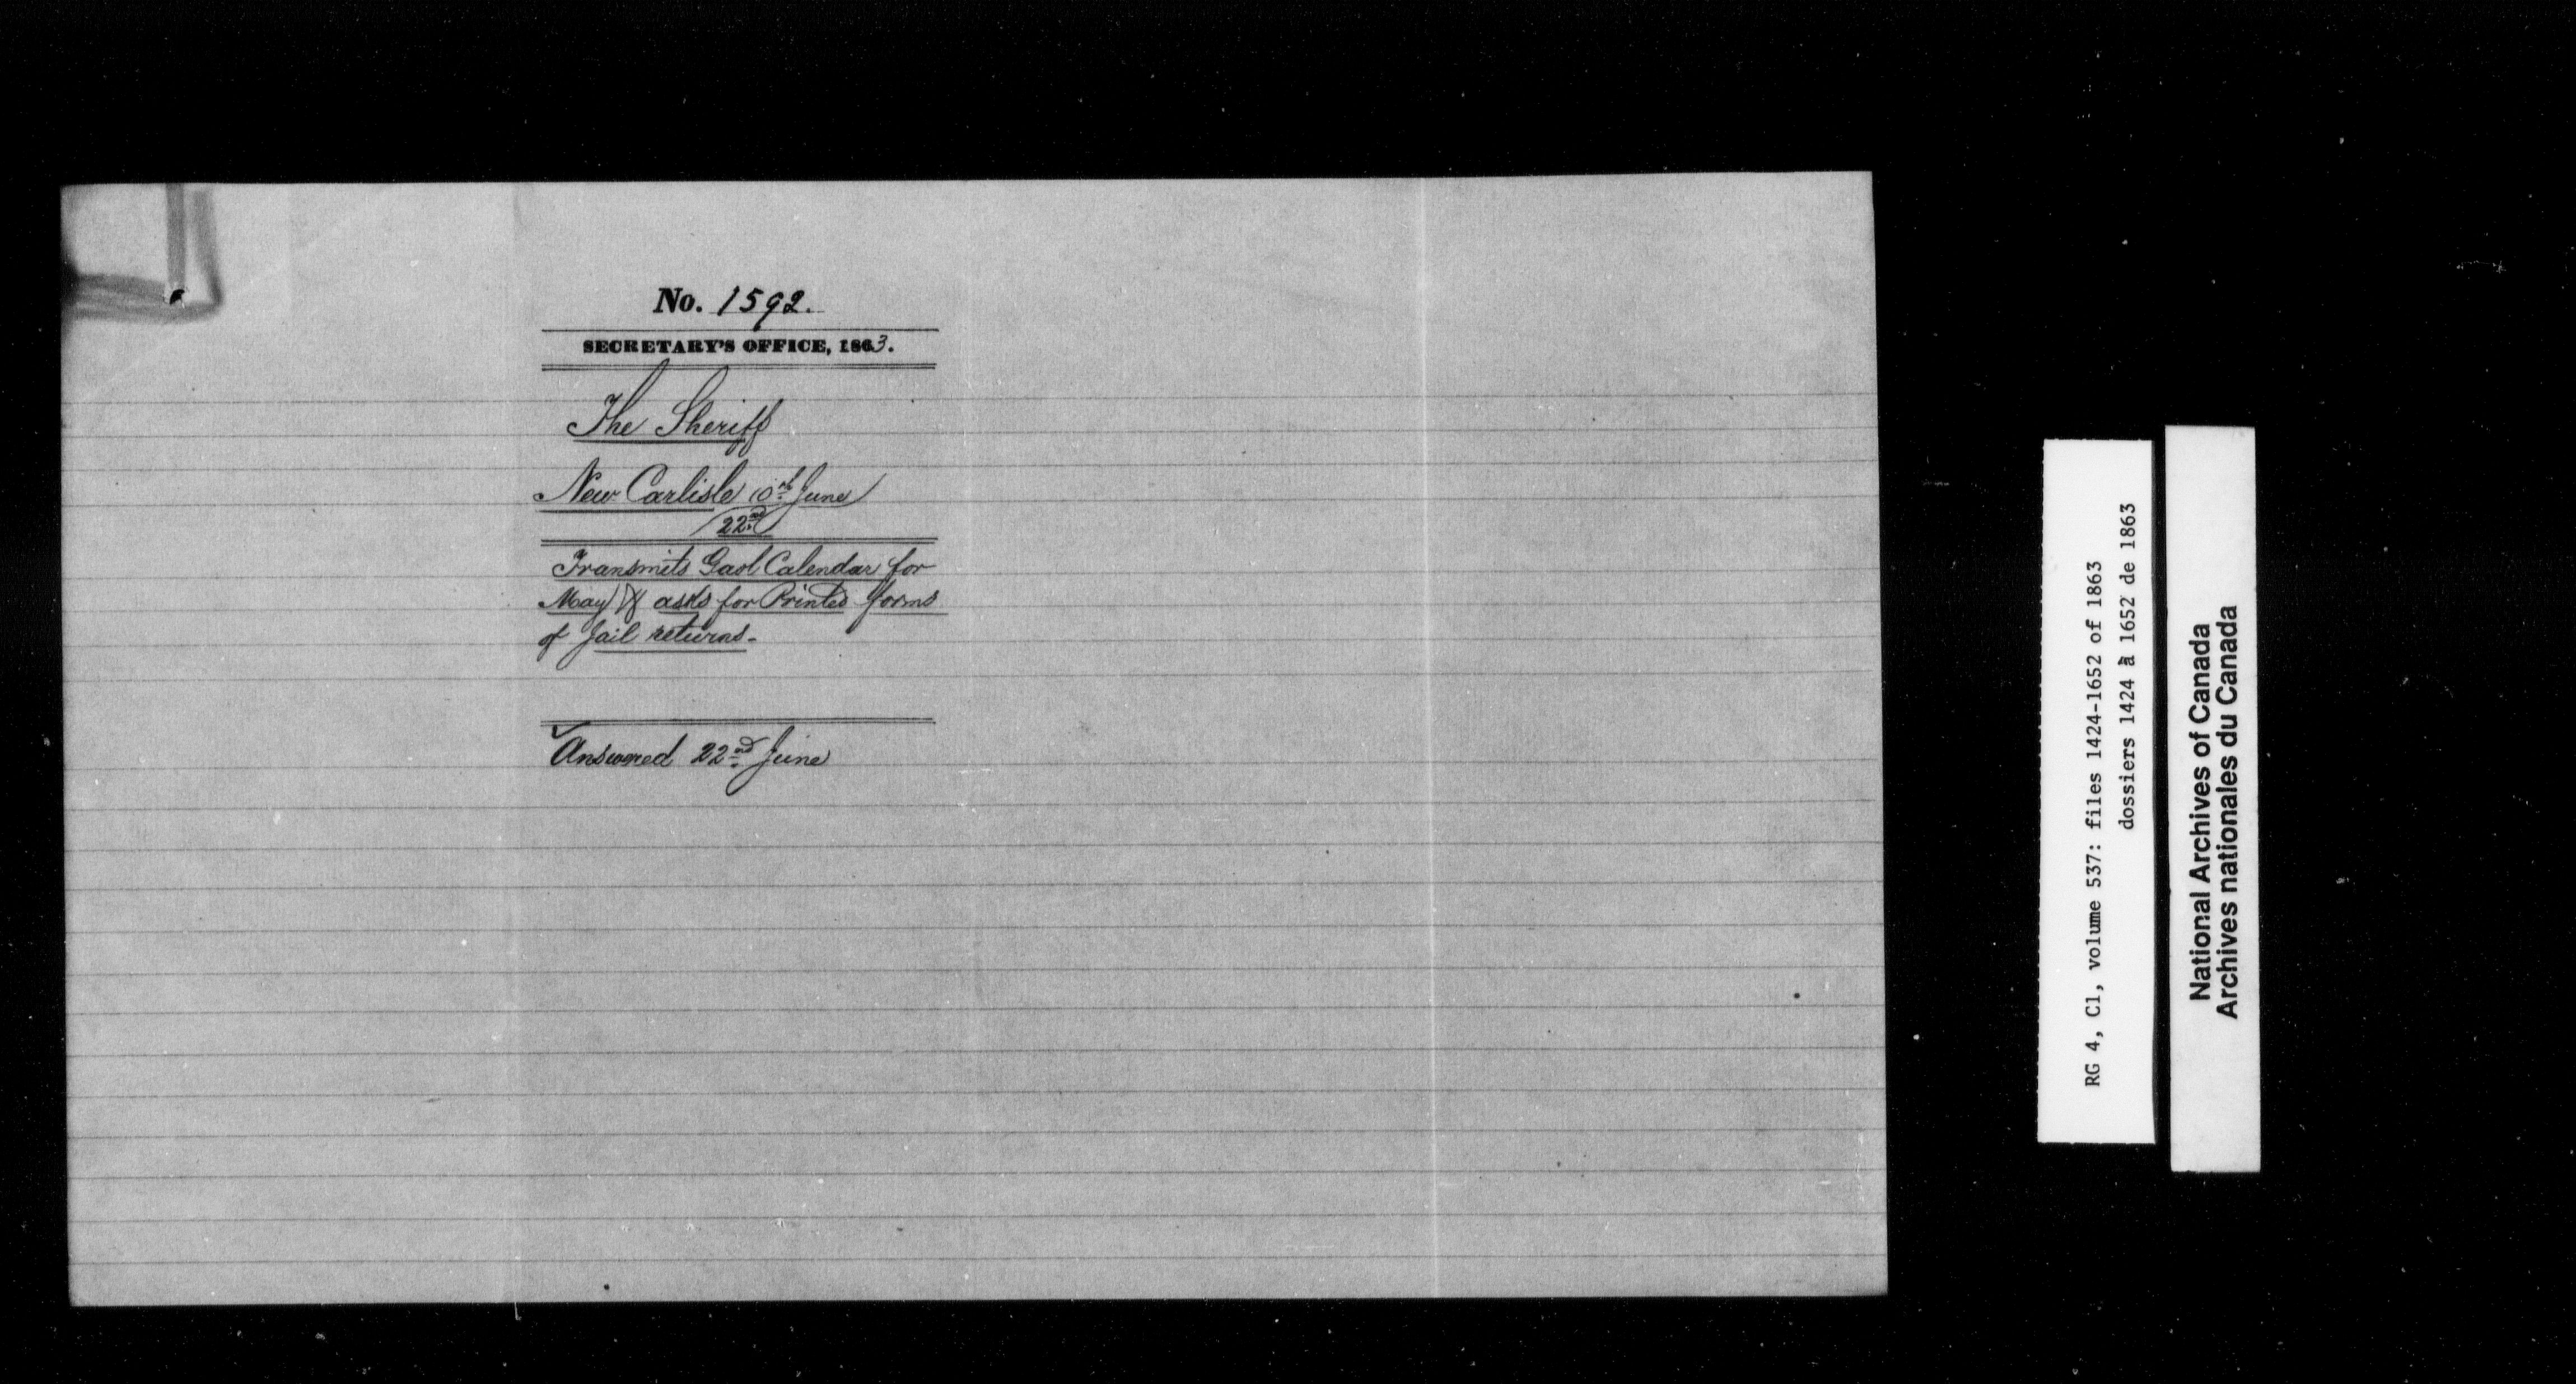 No. 1592.
SECRETARY'S OFFICE, 1863.
The Sheriff
New Carlisle 10th June
22nd
Transmits Gaol Calendar for
May & asks for Printed forms
of Jail returns.
Answered 22nd June
RG 4, C1, volume 537: files 1424-1652 of 1863
dossiers 1424 à 1652 de 1863
National Archives of Canada
Archives nationales du Canada